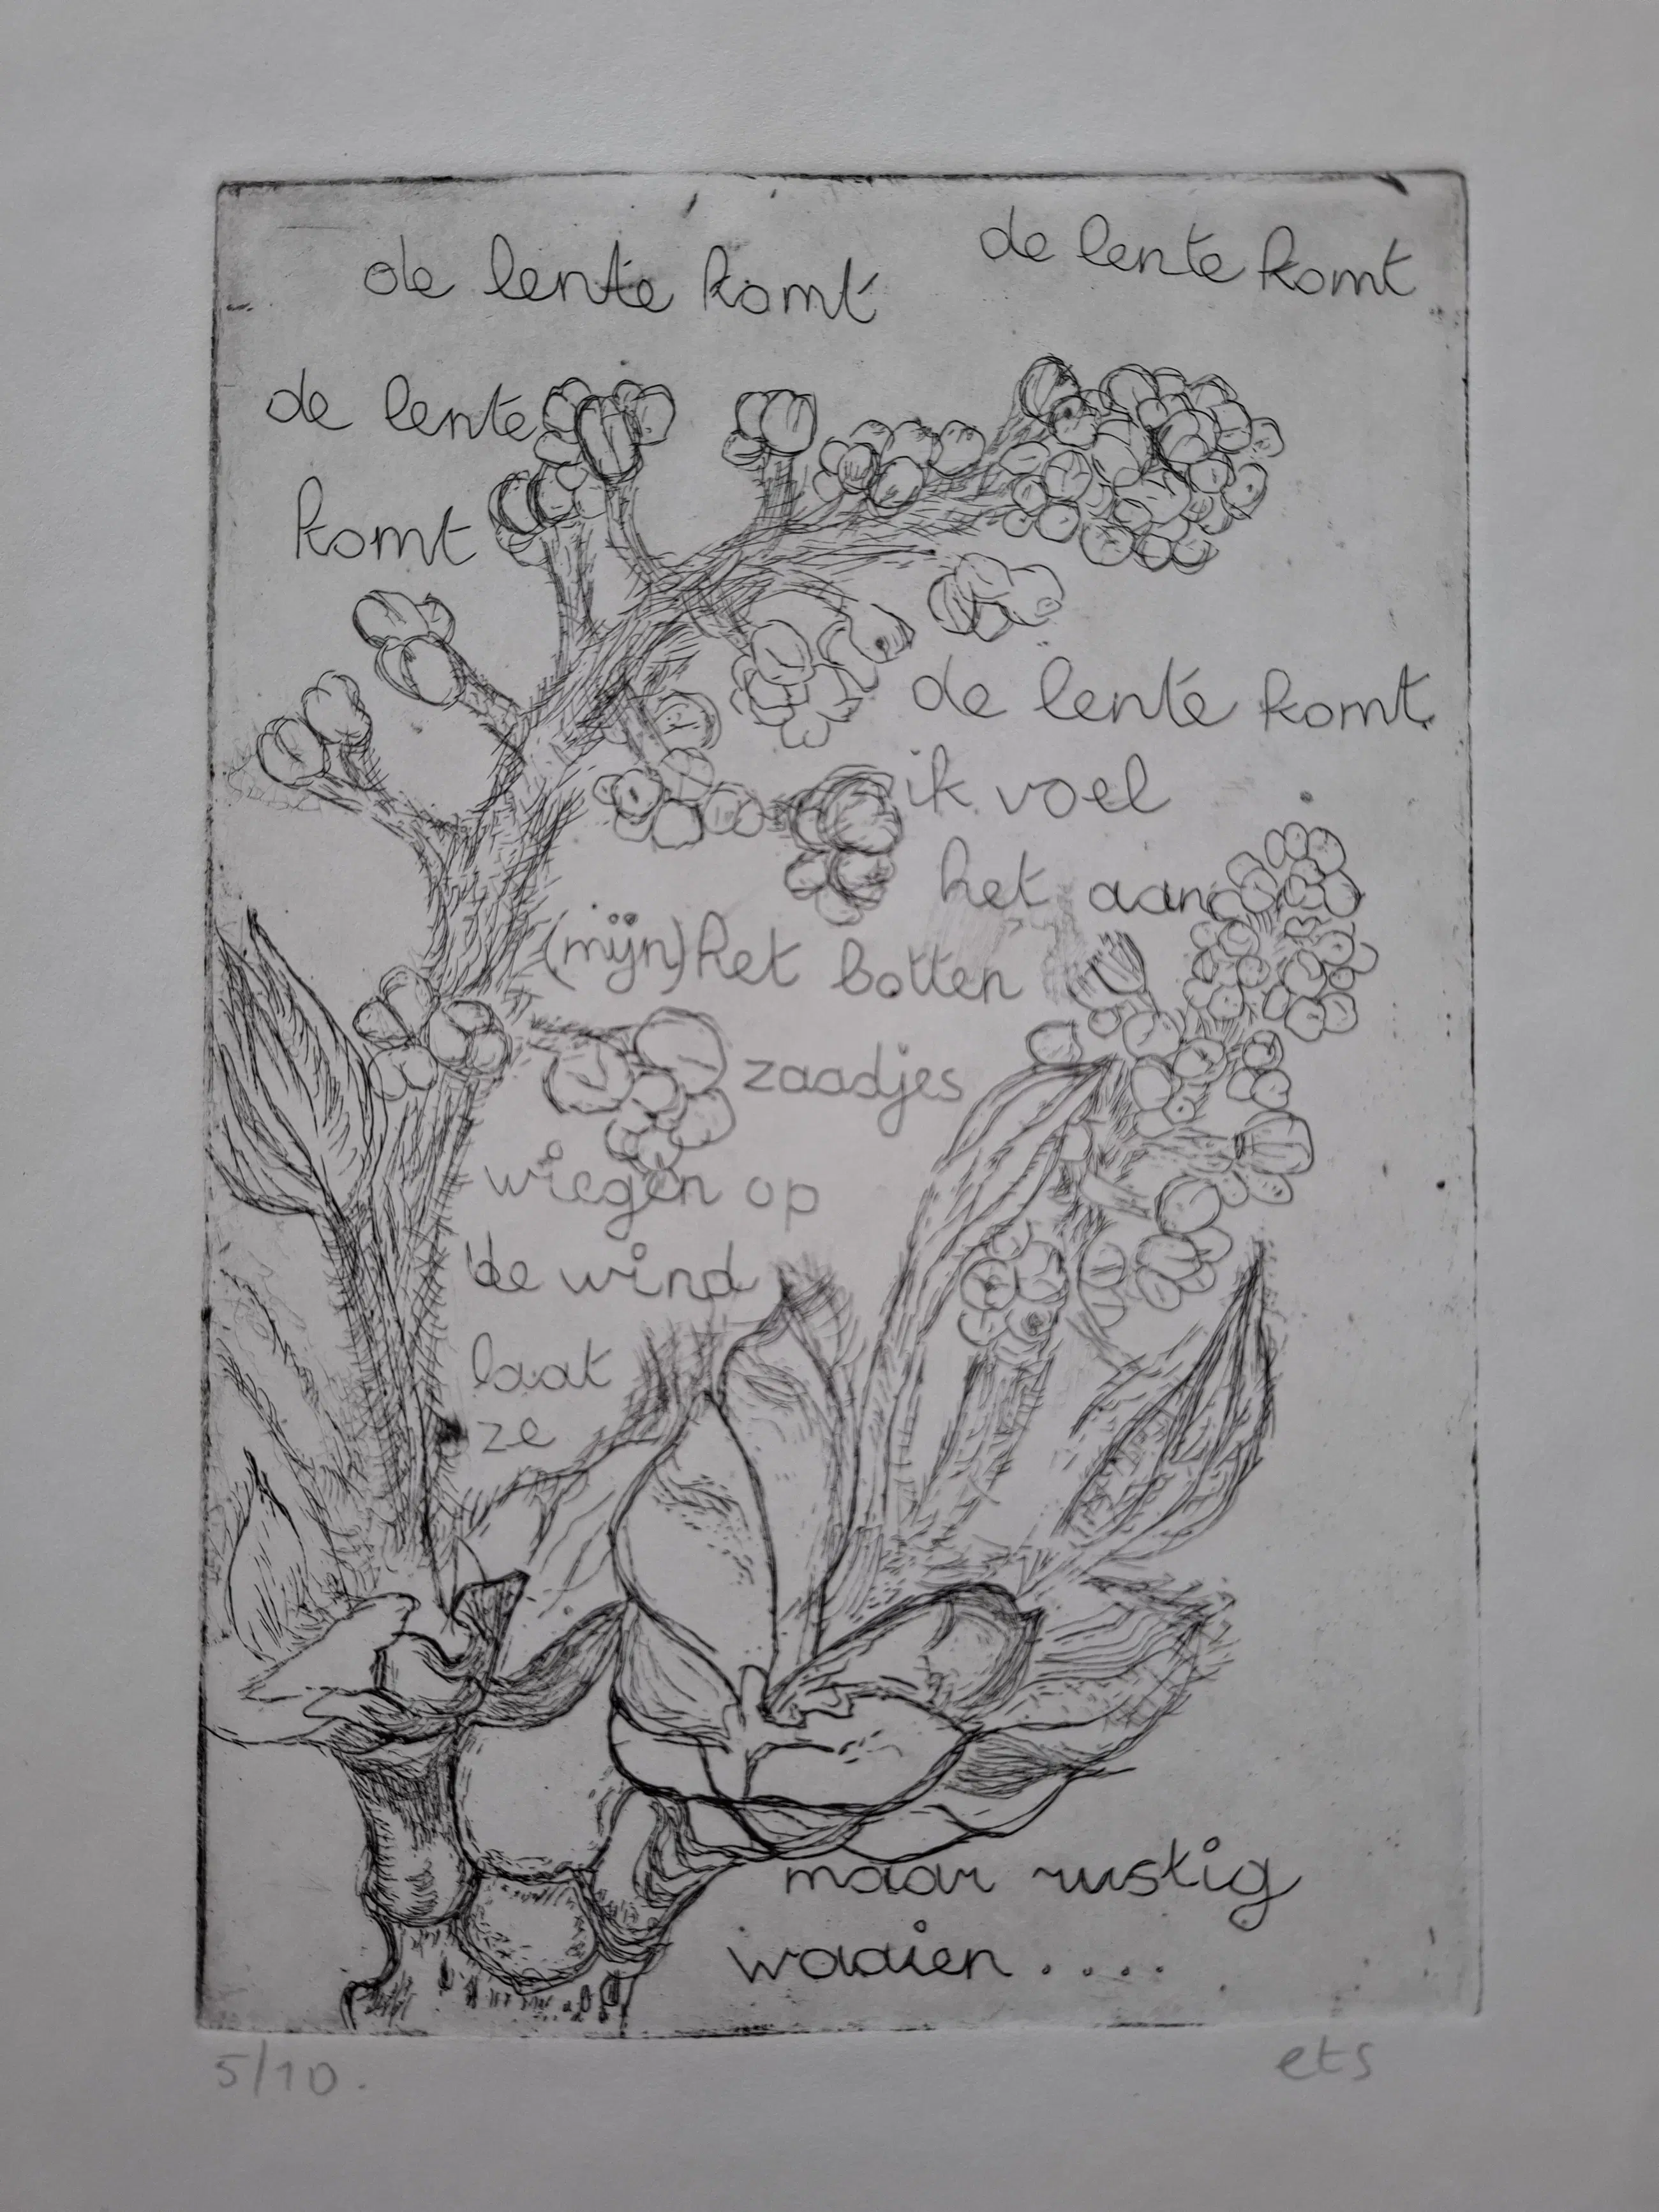 de lente komt
de lente komt
de lente
komt
de lente komt.
ik voel
het aan
(mijn) het botten
zaadjes
wiegen op
de wind
laat
ze
maar rustig
waaien....
5/10.
ets